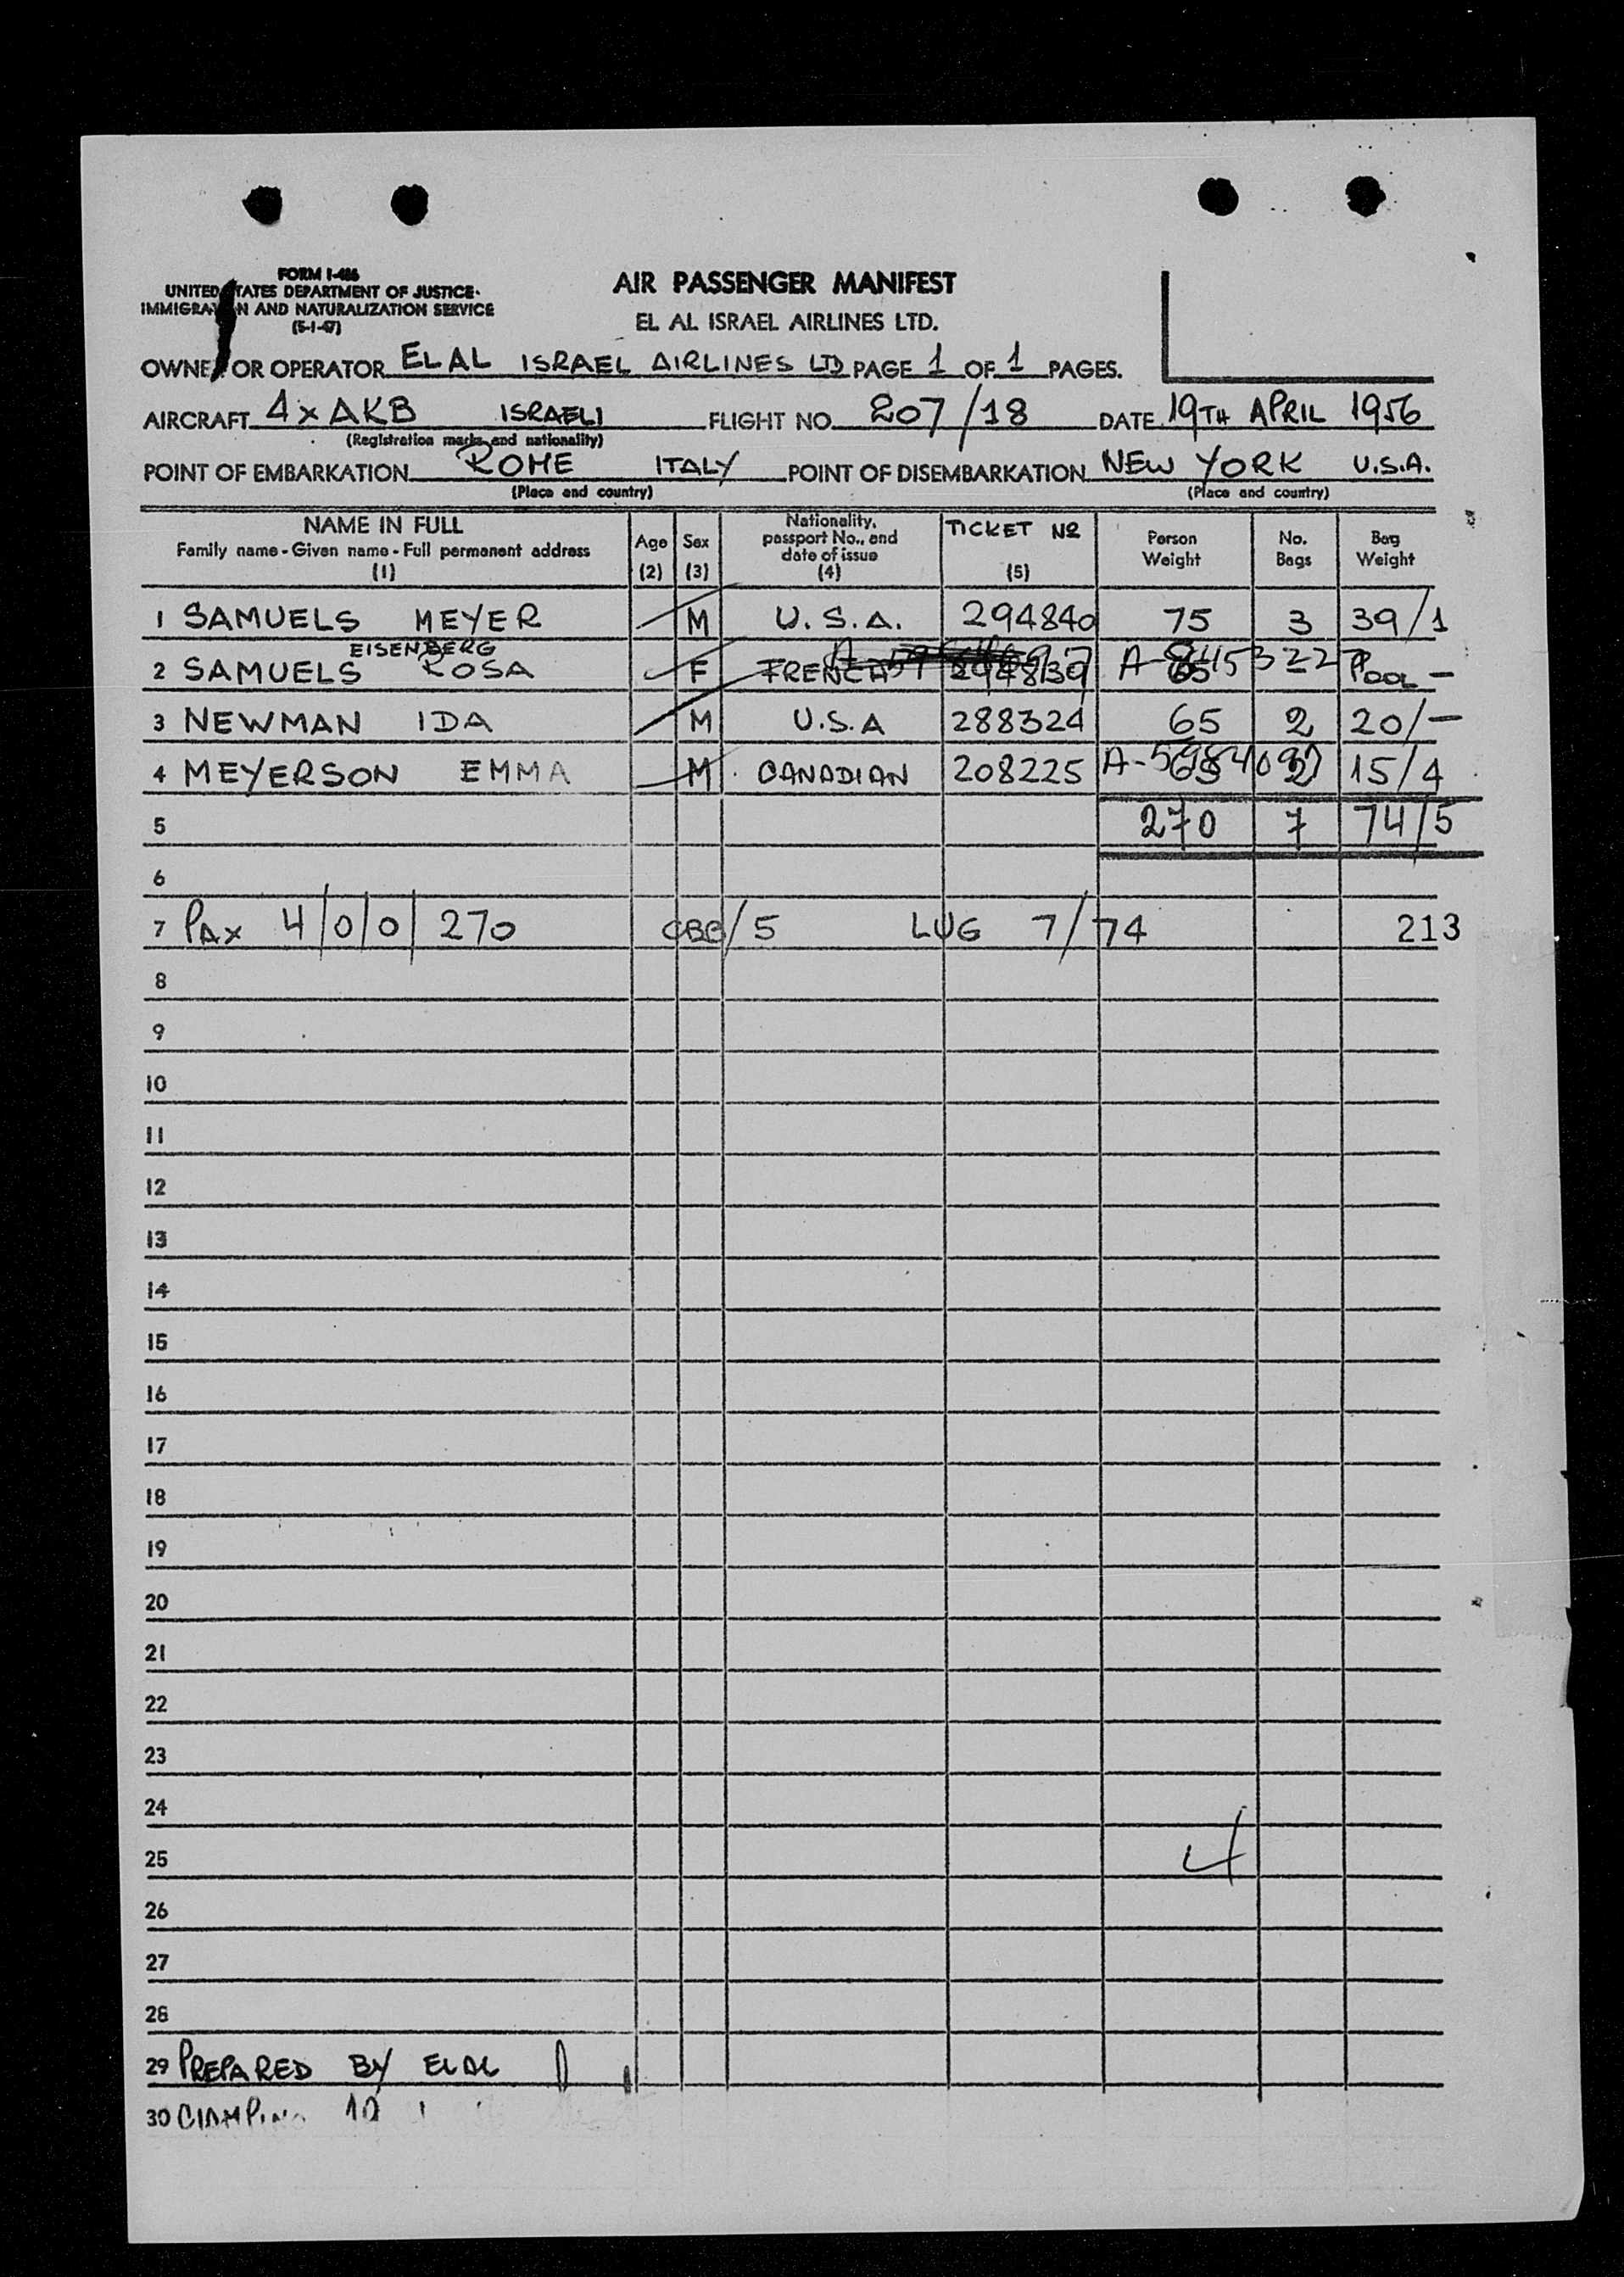 FORM I-466
UNITED STATES DEPARTMENT OF JUSTICE
IMMIGRA N AND NATURALIZATION SERVICE
(5-1-47)
AIR PASSENGER MANIFEST
EL AL ISRAEL AIRLINES LTD.
OWNER OR OPERATOR EL AL ISRAEL AIRLINES LTD PAGE 1 OF 1 PAGES.
AIRCRAFT 4XAKB ISRAELI FLIGHT NO. 207/18 DATE 19TH APRIL 1956
(Registration marks and nationality)
POINT OF EMBARKATION ROME ITALY POINT OF DISEMBARKATION NEW YORK U.S.A.
(Place and country) (Place and country)
NAME IN FULL
Family name - Given name - Full permanent address
(1)
Age
(2)
Sex
(3)
Nationality,
passport No., and
date of issue
(4)
TICKET No
(5)
Person
Weight
No.
Bags
Bag
Weight
1 SAMUELS MEYER M U.S.A. 294840 75 3 39/1
EISENBERG
2 SAMUELS ROSA F FRENCH 294839 65 A-8453227 POOL -
3 NEWMAN IDA M U.S.A 288324 65 2 20/-
4 MEYERSON EMMA M CANADIAN 208225 65 2 15/4
5 270 7 74/5
6
7 PAX 4/0/0/270 CBB/5 LUG 7/74 213
8
9
10
11
12
13
14
15
16
17
18
19
20
21
22
23
24
4
25
26
27
28
29 PREPARED BY ELAL
30 CIAMPINO